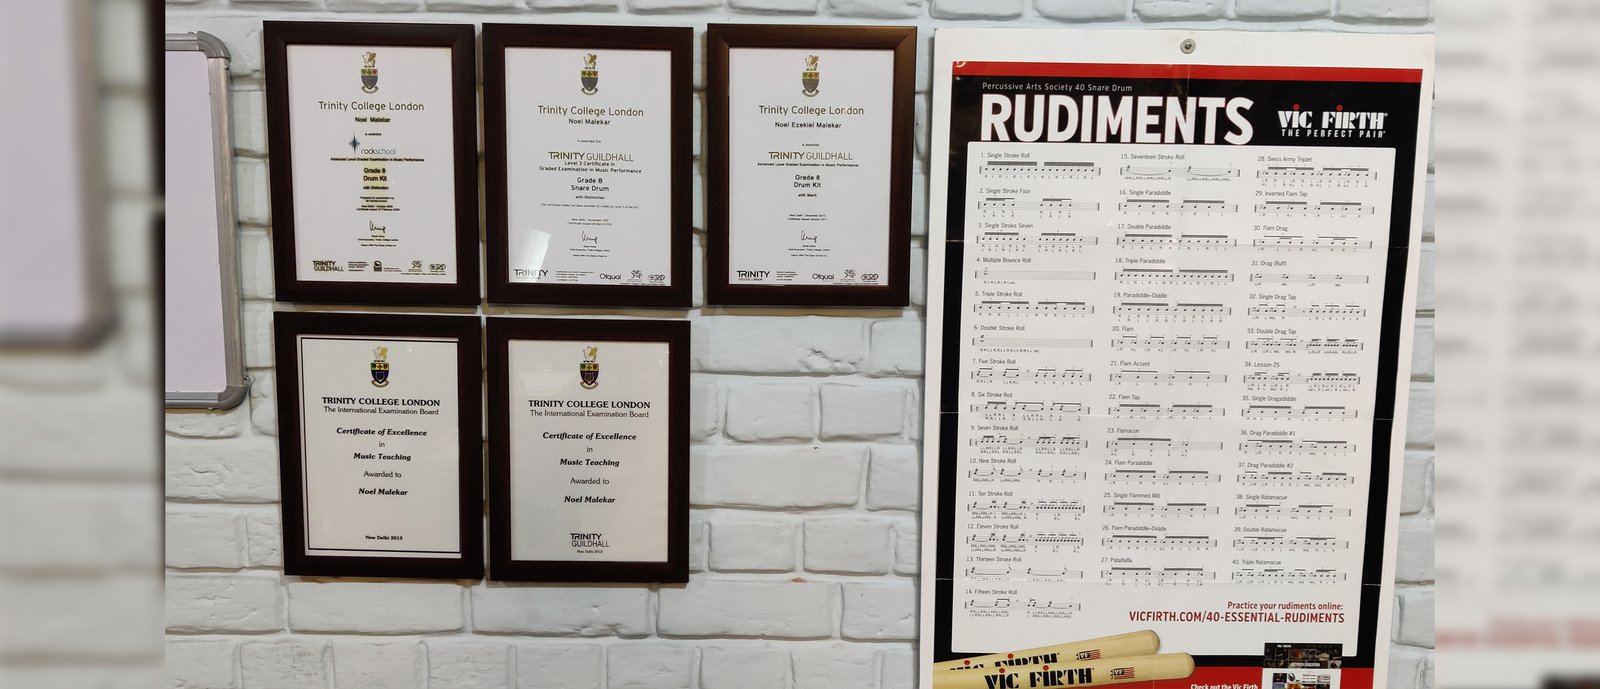 Trinity College London
Noel Malekar
is awarded
rockschool
Advanced Level Graded Examination in Music Performance
Grade 8
Drum Kit
with Distinction
TRINITY
GUILDHALL
Trinity College London
Noel Malekar
is awarded the
TRINITY GUILDHALL
Level 3 Certificate in
Graded Examination in Music Performance
Grade 8
Snare Drum
with Distinction
TRINITY
Ofqual
Trinity College London
Noel Ezekiel Malekar
is awarded
TRINITY GUILDHALL
Advanced Level Graded Examination in Music Performance
Grade 8
Drum Kit
with Merit
TRINITY
COLLEGE LONDON
Ofqual
TRINITY COLLEGE LONDON
The International Examination Board
Certificate of Excellence
in
Music Teaching
Awarded to
Noel Malekar
New Delhi 2013
TRINITY COLLEGE LONDON
The International Examination Board
Certificate of Excellence
in
Music Teaching
Awarded to
Noel Malekar
TRINITY
GUILDHALL
New Delhi 2012
Percussive Arts Society 40 Snare Drum
RUDIMENTS
VIC FIRTH
THE PERFECT PAIR
1. Single Stroke Roll
2. Single Stroke Four
3. Single Stroke Seven
4. Multiple Bounce Roll
5. Triple Stroke Roll
6. Double Stroke Roll
7. Five Stroke Roll
8. Six Stroke Roll
9. Seven Stroke Roll
10. Nine Stroke Roll
11. Ten Stroke Roll
12. Eleven Stroke Roll
13. Thirteen Stroke Roll
14. Fifteen Stroke Roll
15. Seventeen Stroke Roll
16. Single Paradiddle
17. Double Paradiddle
18. Triple Paradiddle
19. Paradiddle-Diddle
20. Flam
21. Flam Accent
22. Flam Tap
23. Flamacue
24. Flam Paradiddle
25. Single Flammed Mill
26. Flam Paradiddle-Diddle
27. Pataflafla
28. Swiss Army Triplet
29. Inverted Flam Tap
30. Flam Drag
31. Drag (Ruff)
32. Single Drag Tap
33. Double Drag Tap
34. Lesson 25
35. Single Dragadiddle
36. Drag Paradiddle #1
37. Drag Paradiddle #2
38. Single Ratamacue
39. Double Ratamacue
40. Triple Ratamacue
Practice your rudiments online:
VICFIRTH.COM/40-ESSENTIAL-RUDIMENTS
VIC FIRTH
VIC FIRTH
Check out the Vic Firth